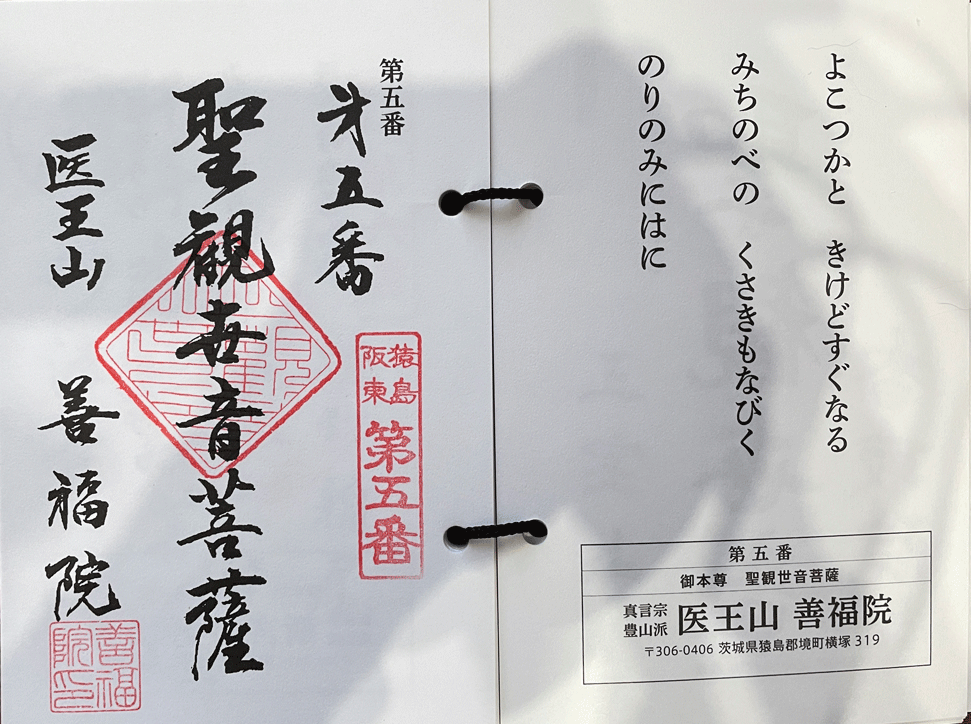 よこつかと　きけどすぐなる
みちのべの　くさきもなびく
のりのみにはに
第五番
御本尊　聖観世音菩薩
真言宗
豊山派
医王山 善福院
〒306-0406 茨城県猿島郡境町横塚 319
第五番
㐧五番
聖観世音菩薩
医王山　善福院
猿島
阪東
第五番
善福
院印